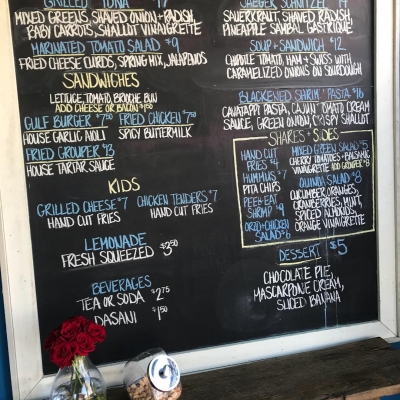 GRILLED TUNA
MIXED GREENS, SHAVED ONION + RADISH,
BABY CARROTS, SHALLOT VINAIGRETTE
MARINATED TOMATO SALAD $9
FRIED CHEESE CURDS, SPRING MIX, JALAPENOS
SANDWICHES
LETTUCE, TOMATO, BRIOCHE BUN
ADD CHEESE OR BACON $1.50
GULF BURGER $7.50 FRIED CHICKEN $7.50
HOUSE GARLIC AIOLI SPICY BUTTERMILK
FRIED GROUPER $13
HOUSE TARTAR SAUCE
KIDS
GRILLED CHEESE $7 CHICKEN TENDERS $7
HAND CUT FRIES HAND CUT FRIES
LEMONADE
FRESH SQUEEZED $3.50
BEVERAGES
TEA OR SODA $2.75
DASANI $1.50
JAEGER SCHNITZEL $14
SAUERKRAUT, SHAVED RADISH,
PINEAPPLE SAMBAL GASTRIQUE
SOUP + SANDWICH $12
CHIPOTLE TOMATO, HAM + SWISS WITH
CARAMELIZED ONIONS ON SOURDOUGH
BLACKENED SHRIMP PASTA $16
CAVATAPPI PASTA, CAJUN TOMATO CREAM
SAUCE, GREEN ONION, CRISPY SHALLOT
SHARES + SIDES
HAND CUT
FRIES $4
HUMMUS $7
PITA CHIPS
PEEL + EAT
SHRIMP $9
ORZO + CHICKEN
SALAD $6
MIXED GREEN SALAD $5
CHERRY TOMATOES + BALSAMIC
VINAIGRETTE ADD GROUPER $8
QUINOA SALAD $8
CUCUMBER, ORANGES,
CRANBERRIES, MINT,
SPICED ALMONDS,
ORANGE VINAIGRETTE
DESSERT $5
CHOCOLATE PIE,
MASCARPONE CREAM,
SLICED BANANA